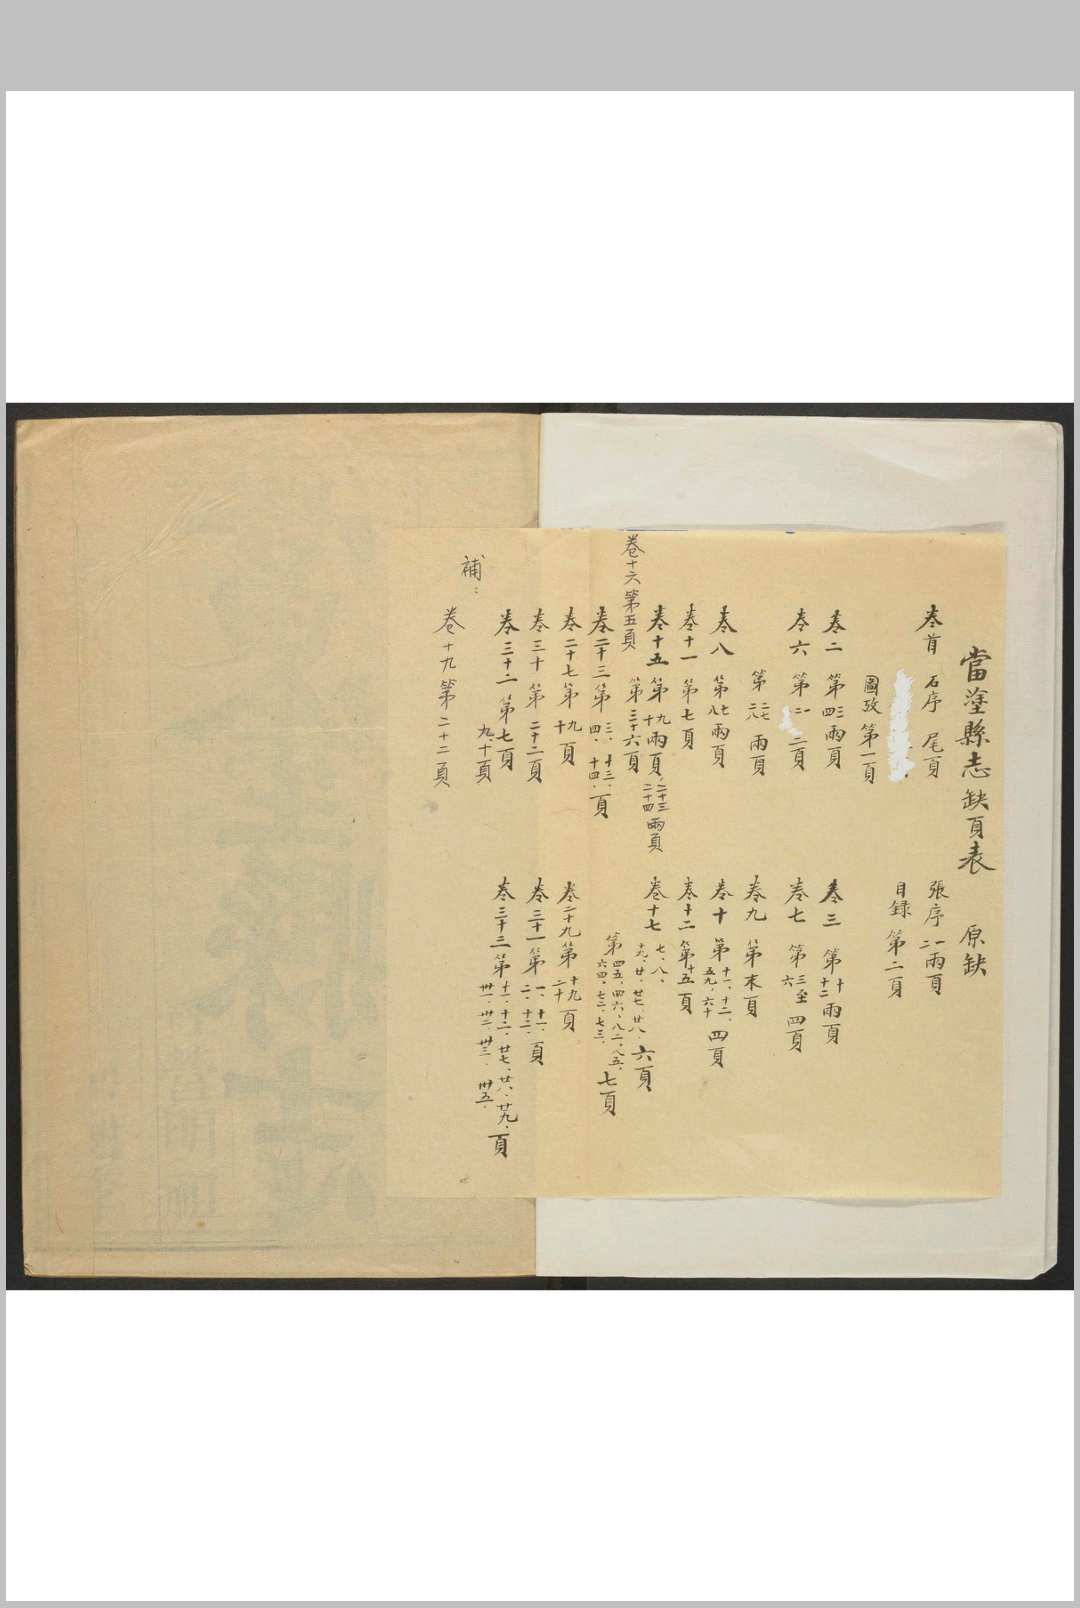 當塗縣志缺頁表　原缺
卷首　石序　尾頁　張序　一二兩頁
目録　第二頁
圖攷　第一頁
卷二　第三四兩頁　卷三　第十十二兩頁
卷六　第二頁　卷七　第三至六四頁
第二七二八兩頁　卷九　第末頁
卷八　第七八兩頁　卷十　第十一、十二、五九、六十四頁
卷十一　第七頁　卷十二　第十五頁
卷十五　第九十兩頁、二十三二十四兩頁　卷十七　七、八、十九、廿、廿七、廿八、六頁
卷十六　第五頁　第三十六頁　第四五、四六、八二、八五、六四、七二、七三、七頁
卷二十三　第三、四、十三、十四、頁
卷二十七　第九十頁　卷二十九　第十九二十頁
卷三十　第二十二頁　卷三十一　第一、二、十一、十二、頁
卷三十二　第七頁　卷三十三　第十一、十二、廿七、廿八、廿九、頁
九、十頁　卅一、卅二、卅三、卅五、
補：
卷十九　第二十二頁